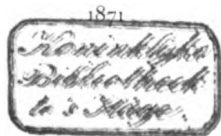 1871
Koninklijke
Bibliotheek
te 's Hage.